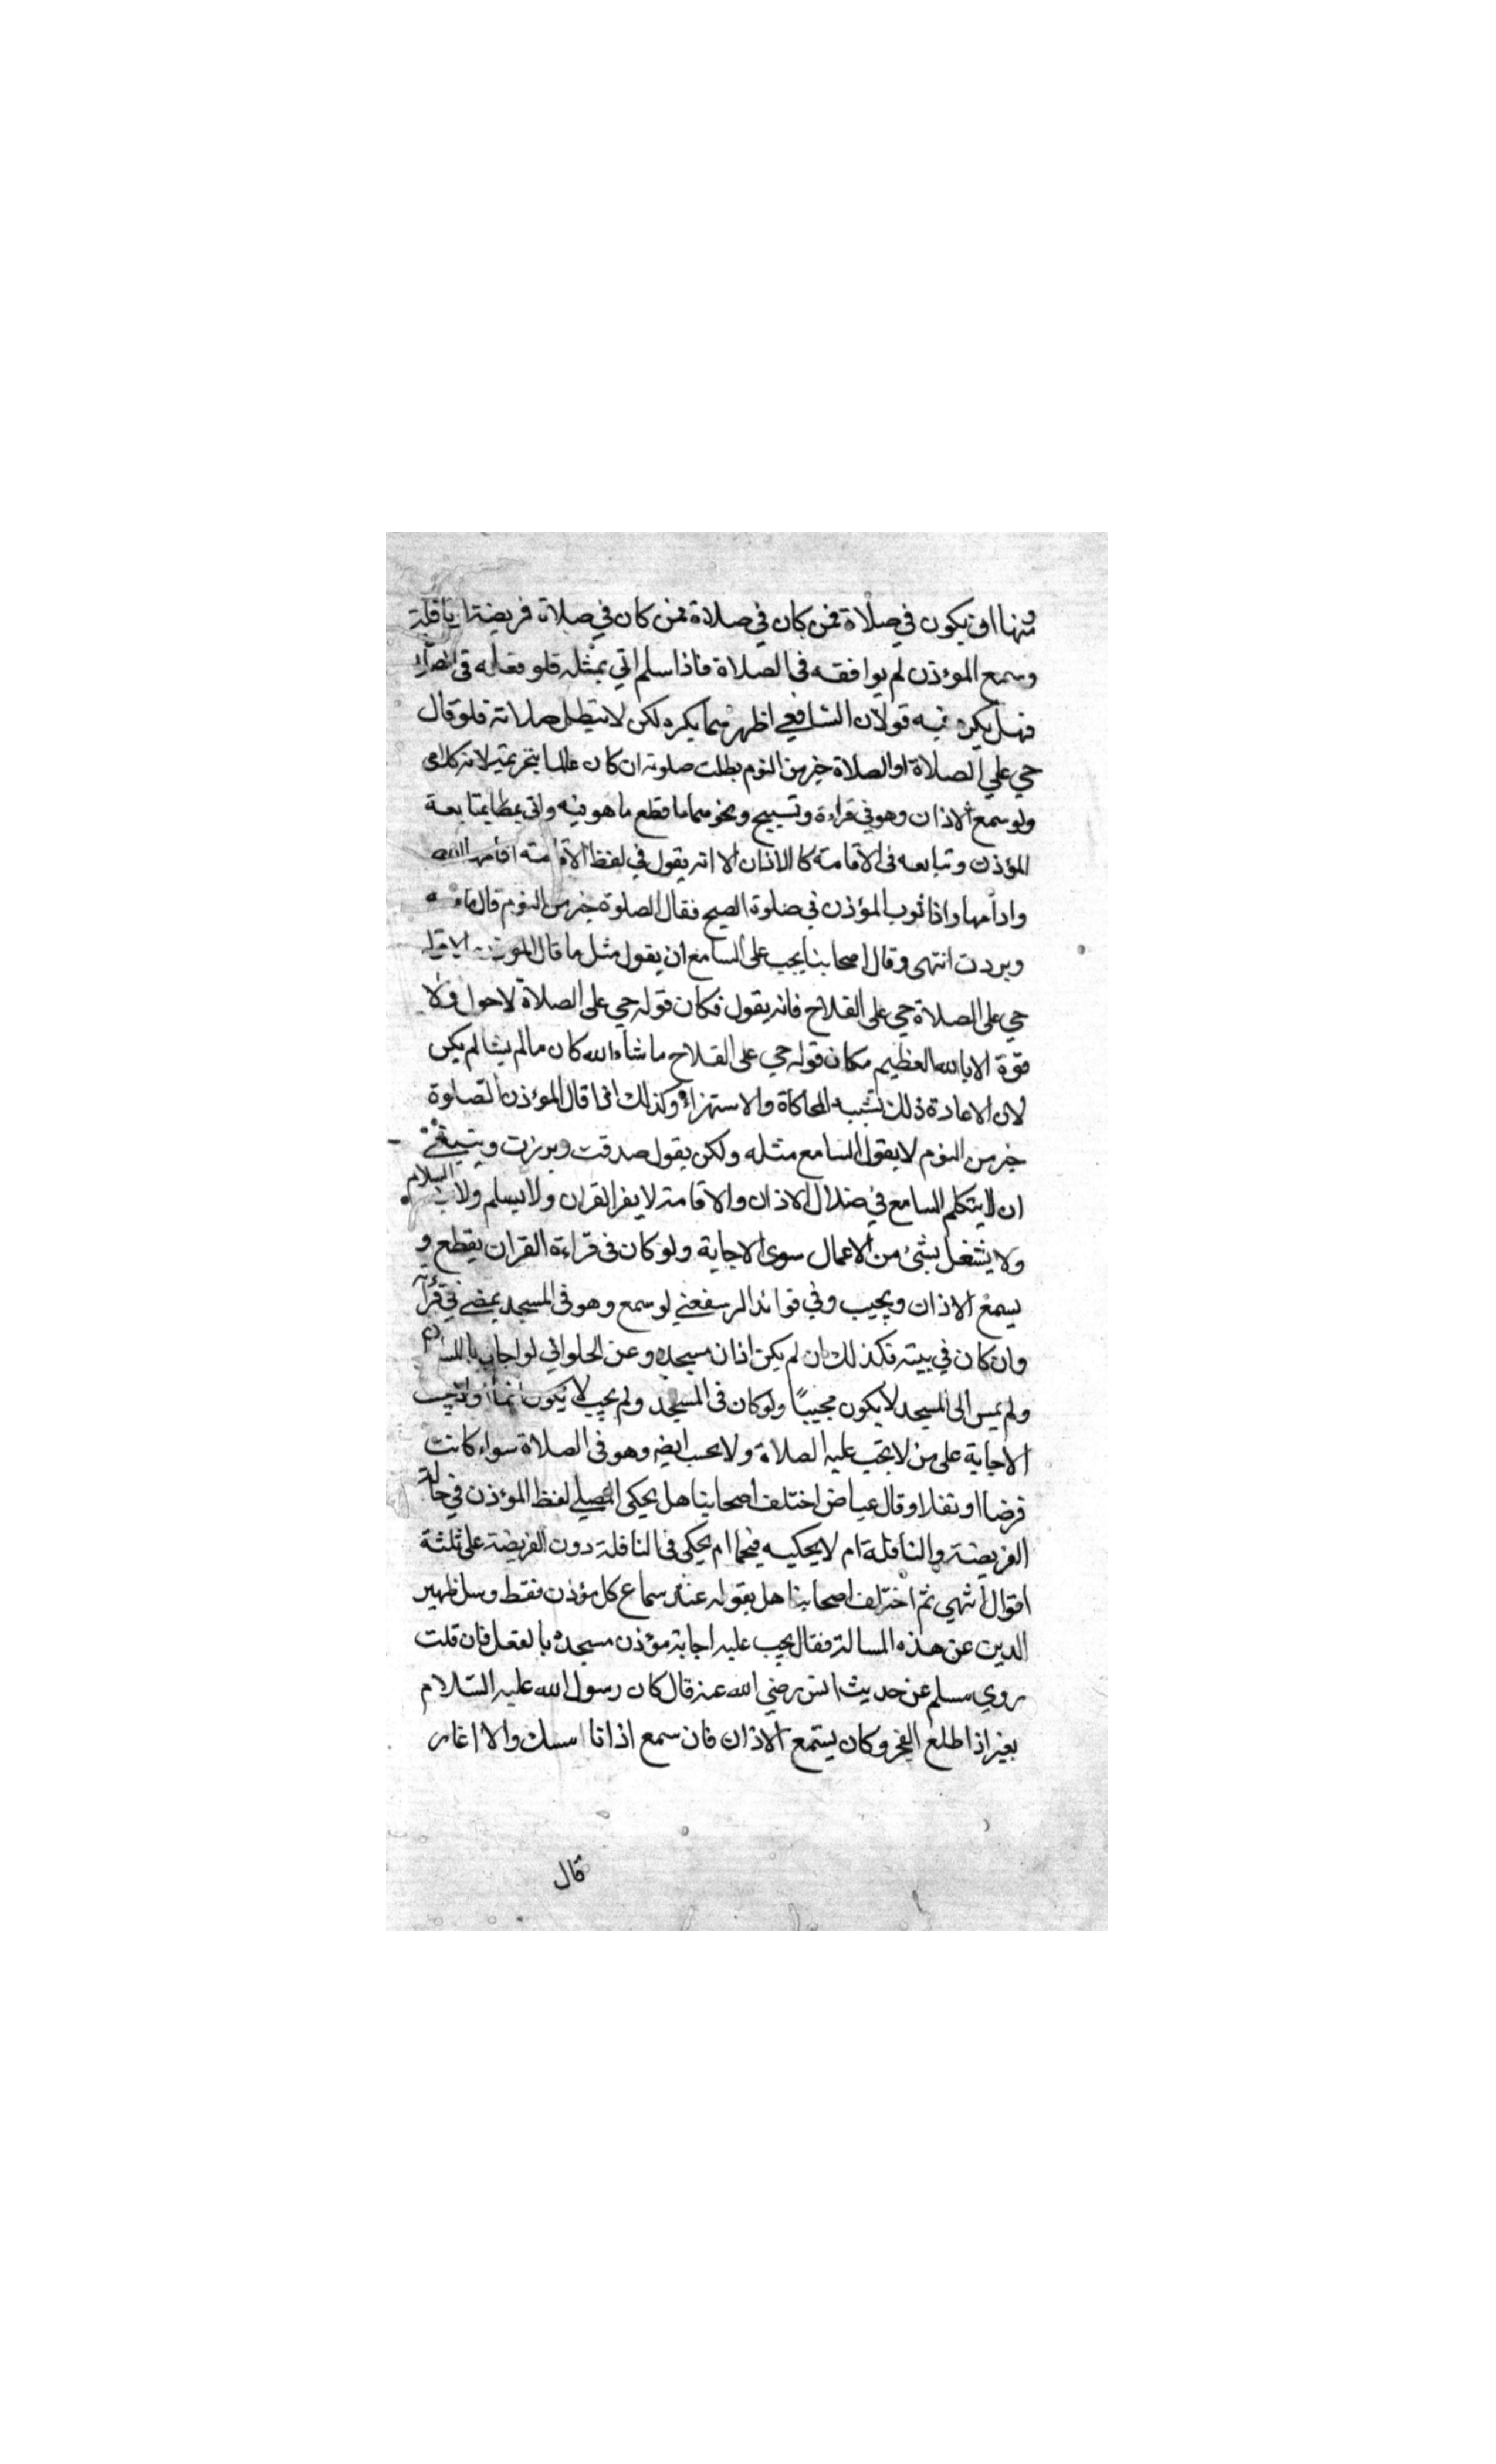 ومنها ان يكون في صلاة فمن كان في صلاة فمن كان في صلاة فريضة او نافلة
وسمع المؤذن لم يوافقه في الصلاة فاذا سلم اتي بمثله فلو فعله في الصلاة
فهل يكره فيه قولان الشافعي اظهرهما يكره لكن لا يبطل صلاته فلو قال
حي علي الصلاة او الصلاة خير من النوم بطلت صلوته ان كان عالما بتحريمه لانه كلام
ولو سمع الاذان وهو في قراءة وتسبيح ونحوهما ما قطع ما هو فيه واتى بمتابعة
المؤذن وتبابعه في الاقامة كالاذان الا انه يقول في لفظ الاقامة اقامها الله
وادامها واذا ثوب المؤذن في صلوة الصبح فقال الصلوة خير من النوم قال
وبررت انتهى وقال اصحابنا يجب على السامع ان يقول مثل ما قال المؤذن الا قوله
حي على الصلاة حي على الفلاح فانه يقول فكان قوله حي على الصلاة لا حول ولا
قوة الا بالله العظيم مكان قوله حي على الفلاح ما شاء الله كان ما لم يشا لم يكن
لان الاعادة ذلك تشبه المحاكاة والاستهزاء وكذلك اذا قال المؤذن الصلوة
خير من النوم لا يقول السامع مثله ولكن يقول صدقت وبررت وينبغي
ان لا يتكلم السامع في خلال الاذان والاقامة لا يقرا القران ولا يسلم ولا السلام
ولا يشتغل بشئ من الاعمال سوى الاجابة ولو كان في قراءة القران يقطع و
يسمع الاذان ويجيب وفي فوائد الرستغفني لو سمع وهو في المسجد يمضي في قرآته
وان كان في بيته فكذلك ان لم يكن اذان مسجده وعن الحلواني لو اجاب باللسان
ولم يمس الى المسجد لا يكون مجيبًا ولو كان في المسجد ولم يجب لا يكون اثما ولا تجب
الاجابة على من لا تجب عليه الصلاة ولا يجب ايضا وهو في الصلاة سواء كانت
فرضا او نفلا وقال عياض اختلف اصحابنا هل يحكى المصلي لفظ المؤذن في حالة
الفريضة والنافلة ام لا يحكيه فيهما ام يحكى في النافلة دون الفريضة على ثلثة
اقوال انتهي ثم اختلف اصحابنا هل يقوله عند سماع كل مؤذن فقط وسل ظهير
الدين عن هذه المسالة فقال يجب عليه اجابة مؤذن مسجده بالفعل فان قلت
روي مسلم عن حديث انس رضي الله عنه قال كان رسول الله عليه السّلام
يغير اذا طلع الفجر وكان يستمع الاذان فان سمع اذانا امسك والا اغار
قال